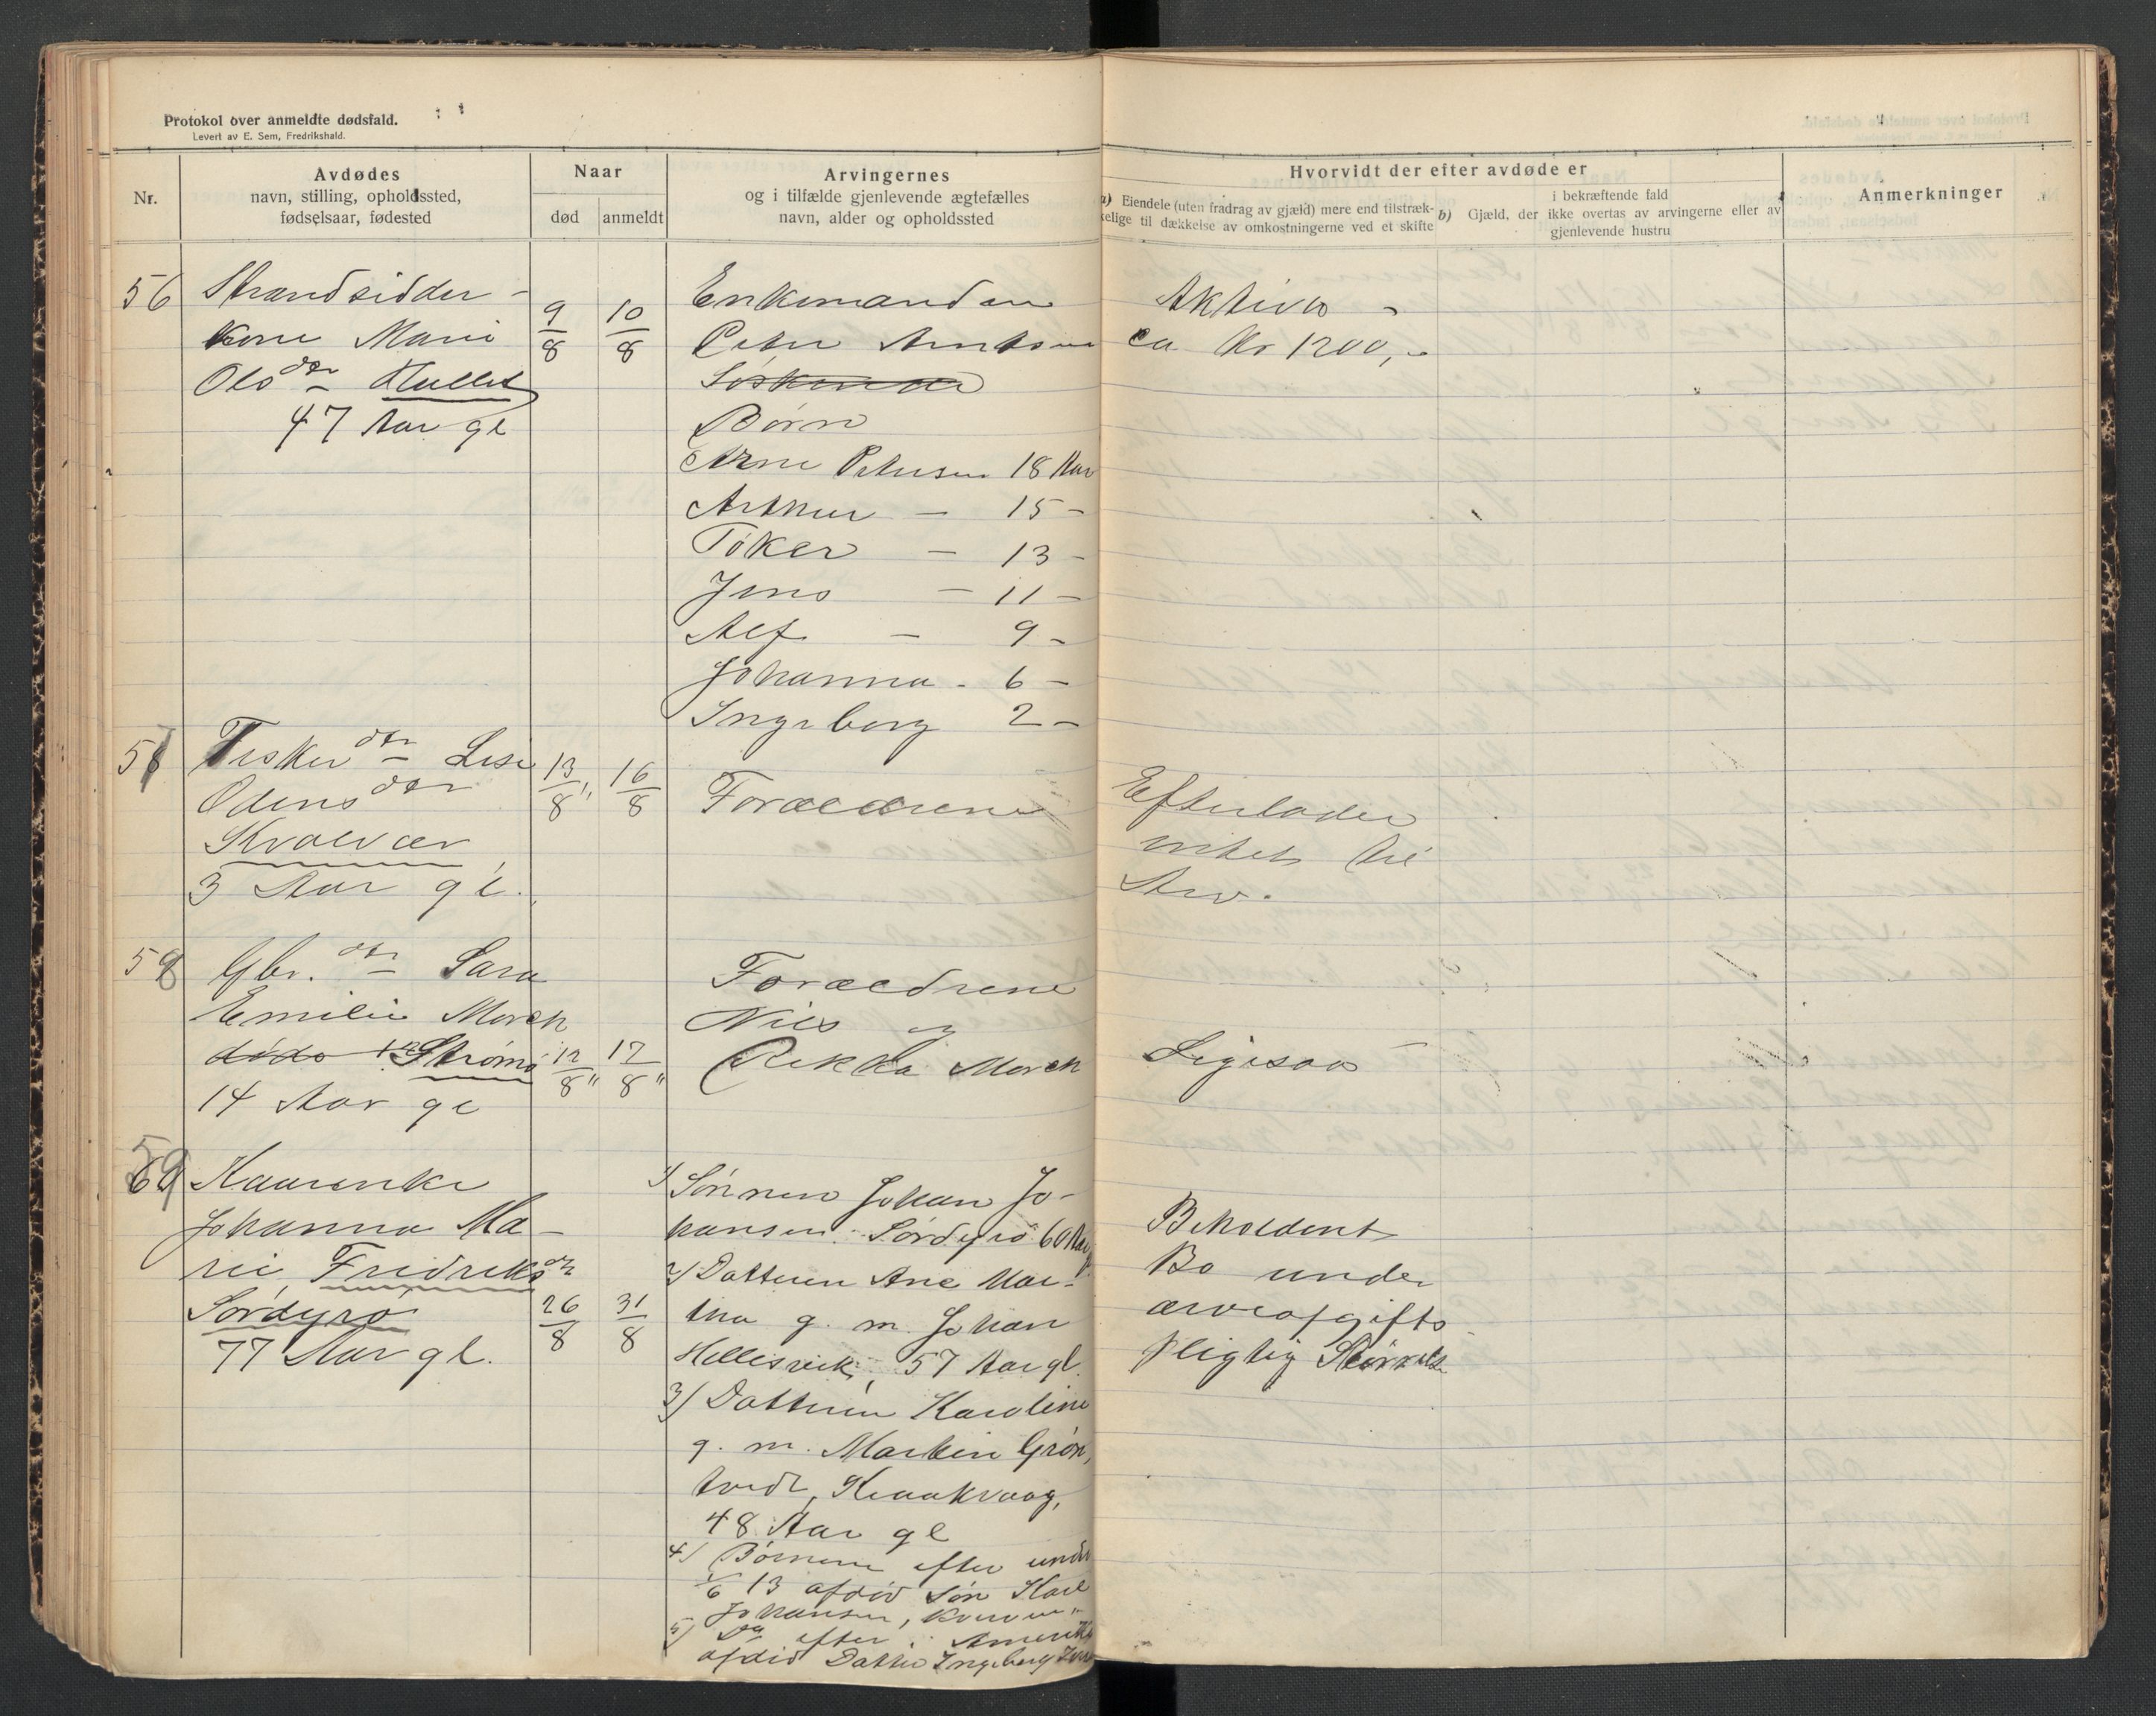 Protokol over anmeldte dødsfald.
Levert av E. Sem, Fredrikshald.
Nr.
Avdødes
navn, stilling, opholdssted,
fødselsaar, fødested
Naar
død
anmeldt
Arvingernes
og i tilfælde gjenlevende ægtefælles
navn, alder og opholdssted
Hvorvidt der efter avdøde er
a) Eiendele (uten fradrag av gjæld) mere end tilstræk-
kelige til dækkelse av omkostningerne ved et skifte
i bekræftende fald
b) Gjæld, der ikke overtas av arvingerne eller av
gjenlevende hustru
Anmerkninger
56
Strandsidder-
kone Marie
Olsdtr
47 Aar gl
9/8
10/8
Enkemanden
Peter Arntsen
Børn
Arne Petersen 18 Aar
Arthur – 15 –
Tøker – 13 –
Jens – 11 –
Alf – 9 –
Johanna – 6 –
Ingeborg 2 –
Aktiva
ca Kr 1200,-
57
Fiskerdtr Lise
Odensdtr
Kvalvær
3 Aar gl.
13/8
16/8
Forældrene
Efterlader
intet til
Arv.
58
Gbr. dtr Sara
Emilie Morch
døde Strømø
14 Aar gl
12/8
17/8
Forældrene
Nils og
Rikka Morch
Ligesaa
59
Kaarenke
Johanna Ma-
rie Fredriksdtr
Sørdyrø
77 Aar gl.
26/8
31/8
1) Sønnen Johan Jo-
hansen Sørdyrø 60 Aar
2) Datteren Ane Mar-
tha g. m. Johan
Hellesvik, 57 Aar gl.
3) Datteren Karoline
g. m. Martin Grøn-
tvedt, Kraakvaag,
48 Aar gl
4) Børnene efter under
1/6 13 afdød Søn Karl
Johansen,
5) Do efter i Amerika
afdød Datter Ingeborg
Beholdent
Bo under
arveafgifts
pligtig Størrelse